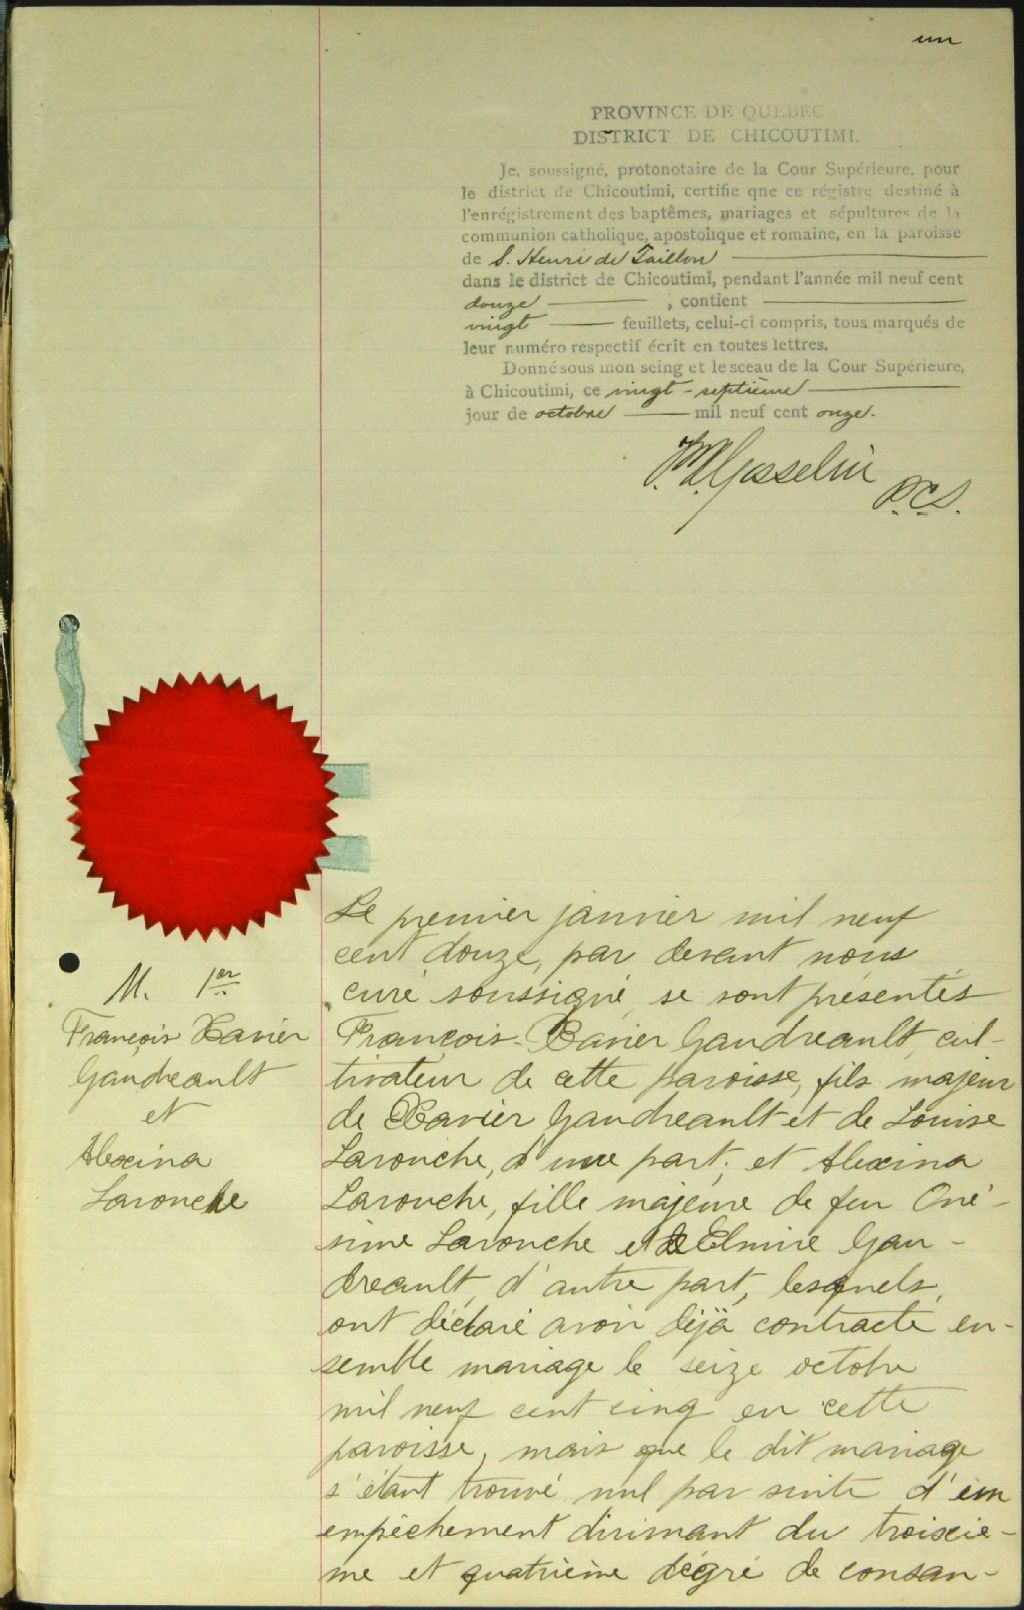 un
PROVINCE DE QUEBEC
DISTRICT DE CHICOUTIMI.
Je, soussigné, protonotaire de la Cour Supérieure, pour
le district de Chicoutimi, certifie que ce régistre destiné à
l'enrégistrement des baptêmes, mariages et sépultures de la
communion catholique, apostolique et romaine, en la paroisse
de S. Henri de Taillon
dans le district de Chicoutimi, pendant l'année mil neuf cent
douze , contient
vingt feuillets, celui-ci compris, tous marqués de
leur numéro respectif écrit en toutes lettres.
Donné sous mon seing et le sceau de la Cour Supérieure,
à Chicoutimi, ce vingt-septième
jour de octobre mil neuf cent onze.
Gosselin
P.C.S.
M. 1er
François Xavier
Gaudreault
et
Alexina
Larouche
Le premier janvier mil neuf
cent douze, par devant nous
curé soussigné, se sont présentés
François-Xavier Gaudreault, cul-
tivateur de cette paroisse, fils majeur
de Xavier Gaudreault et de Louise
Larouche, d'une part; et Alexina
Larouche, fille majeure de feu Oné-
sime Larouche et de Elmire Gau-
dreault, d'autre part, lesquels,
ont déclaré avoir déjà contracté en-
semble mariage le seize octobre
mil neuf cent cinq en cette
paroisse, mais que le dit mariage
s'étant trouvé nul par suite d'un
empêchement dirimant du troisiè-
me et quatrième dégré de consan-